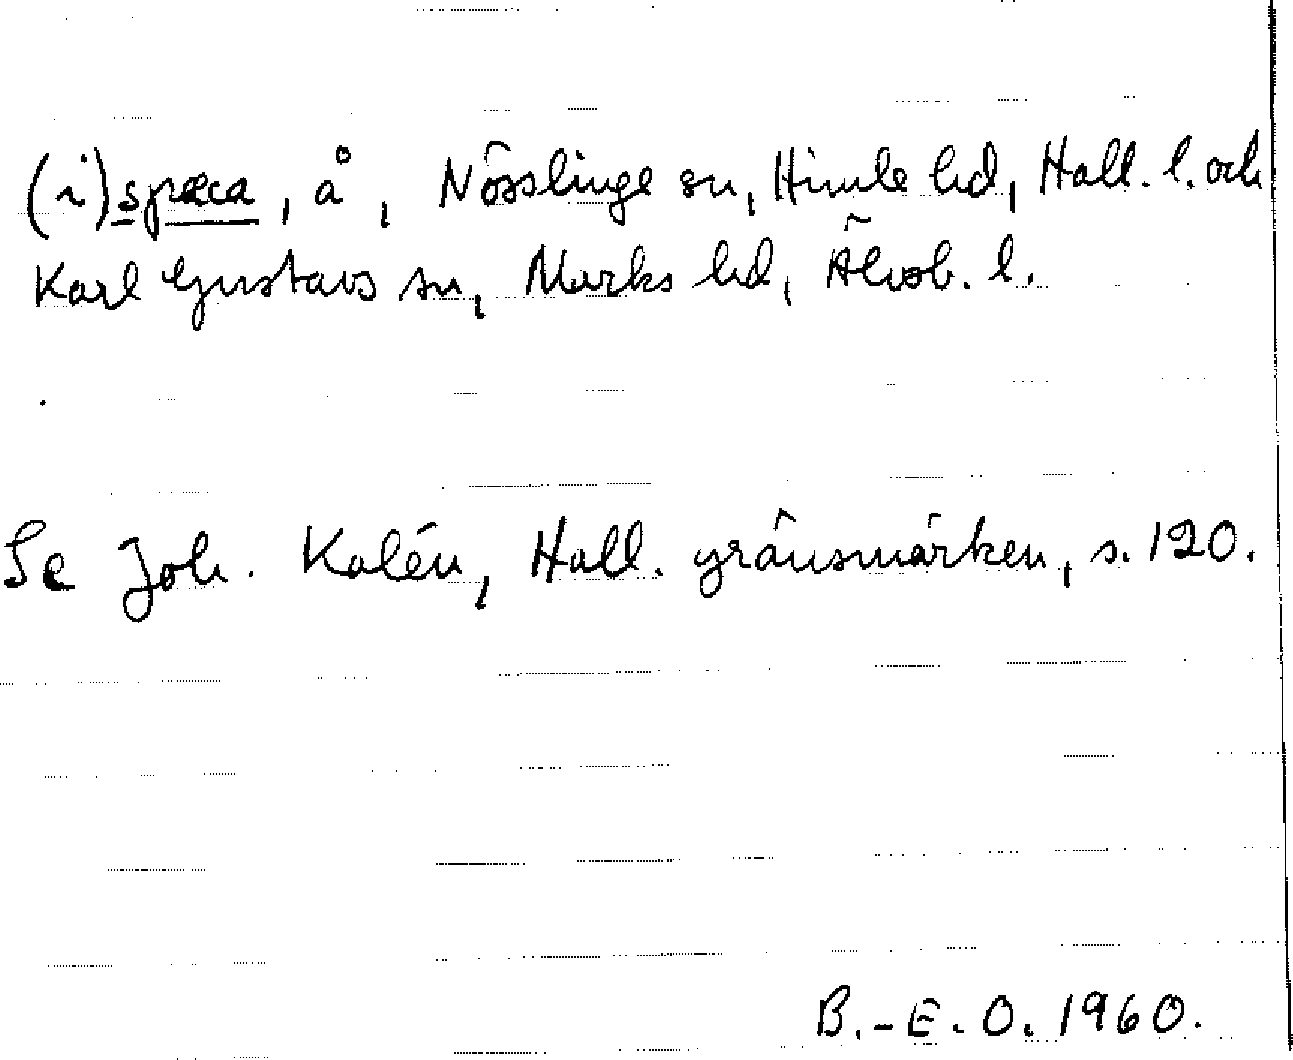 (i) spæca, å, Nösslinge sn, Himle hd, Hall. l. och
Karl Gustavs sn, Marks hd, Älvsb. l.
Se Joh. Kalén, Hall. gränsmärken, s. 120.
B.-E. O. 1960.